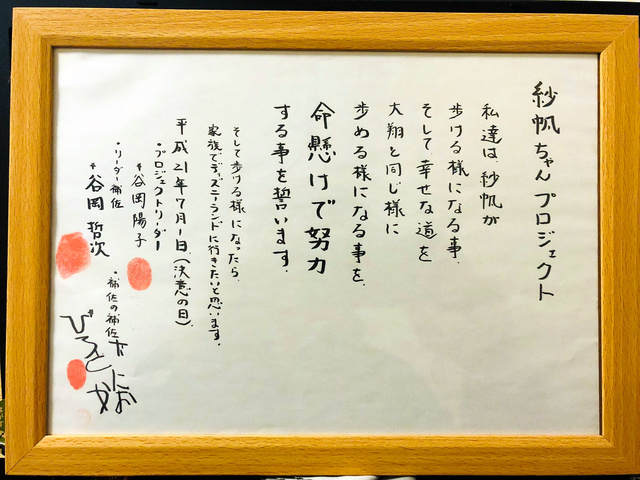 紗帆ちゃんプロジェクト
私達は、紗帆が
歩ける様になる事、
そして幸せな道を
大翔と同じ様に
歩める様になる事を、
命懸けで努力
する事を誓います。
そして歩ける様になったら、
家族でディズニーランドに行きたいと思います。
平成21年7月1日、(決意の日)、
・プロジェクトリーダー
谷岡陽子
・リーダー補佐
谷岡哲次
・補佐の補佐
たにおか
びろと